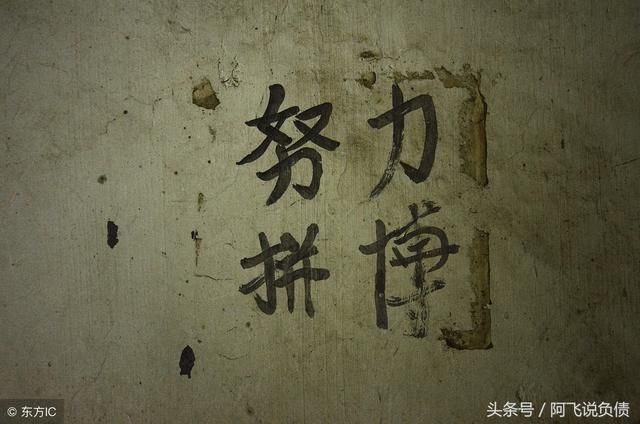 努力
拼博
© 东方IC
头条号 / 阿飞说负债